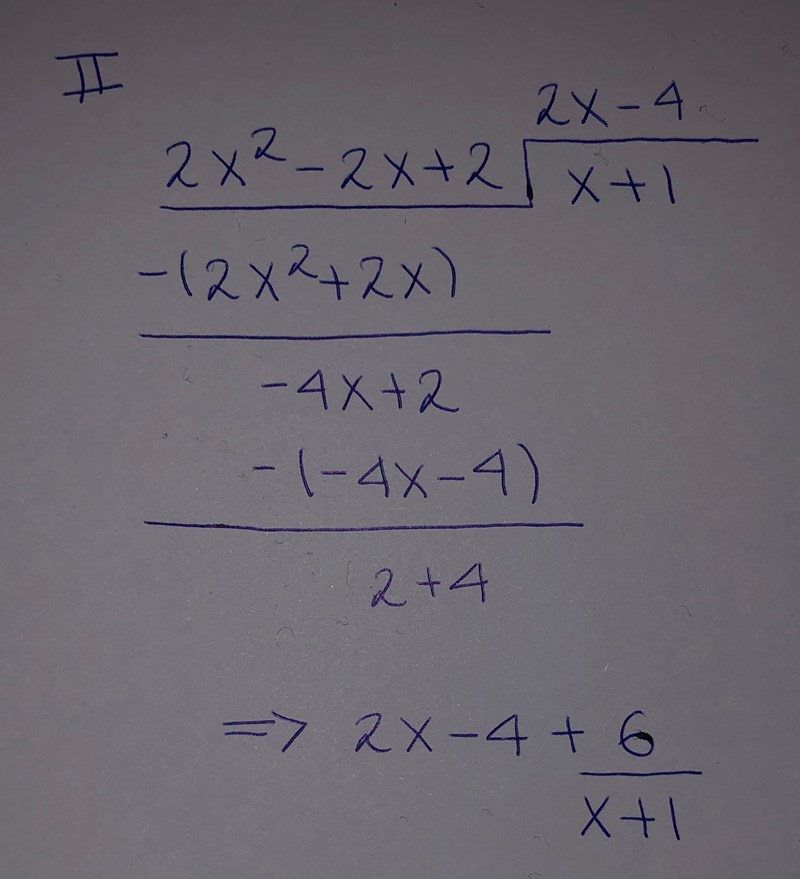 II
2x-4
2x²-2x+2 x+1
-(2x²+2x)
-4x+2
-(-4x-4)
2+4
=> 2x-4+6
x+1